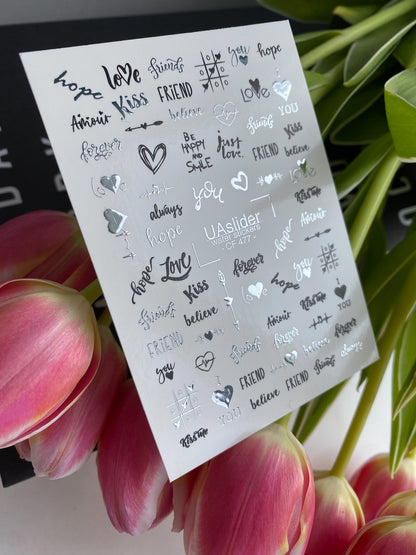 love
friends
you
hope
hope
Kiss
FRIEND
LOVE
YOU
Amour
believe
friends
Kiss
forever
BE
HAPPY
AND
SMILE
just
love.
FRIEND
believe
love
always
you
Kiss me
hope
UAslider
water stickers
- CF 477 -
hope
Amour
hope
Love
Kiss
forever
hope
love
friends
believe
Kiss me
YOU
FRIEND
Amour
forever
friends
FRIEND
you
friends
forever
believe
always
FRIEND
believe
FRIEND
friends
YOU
Kiss me